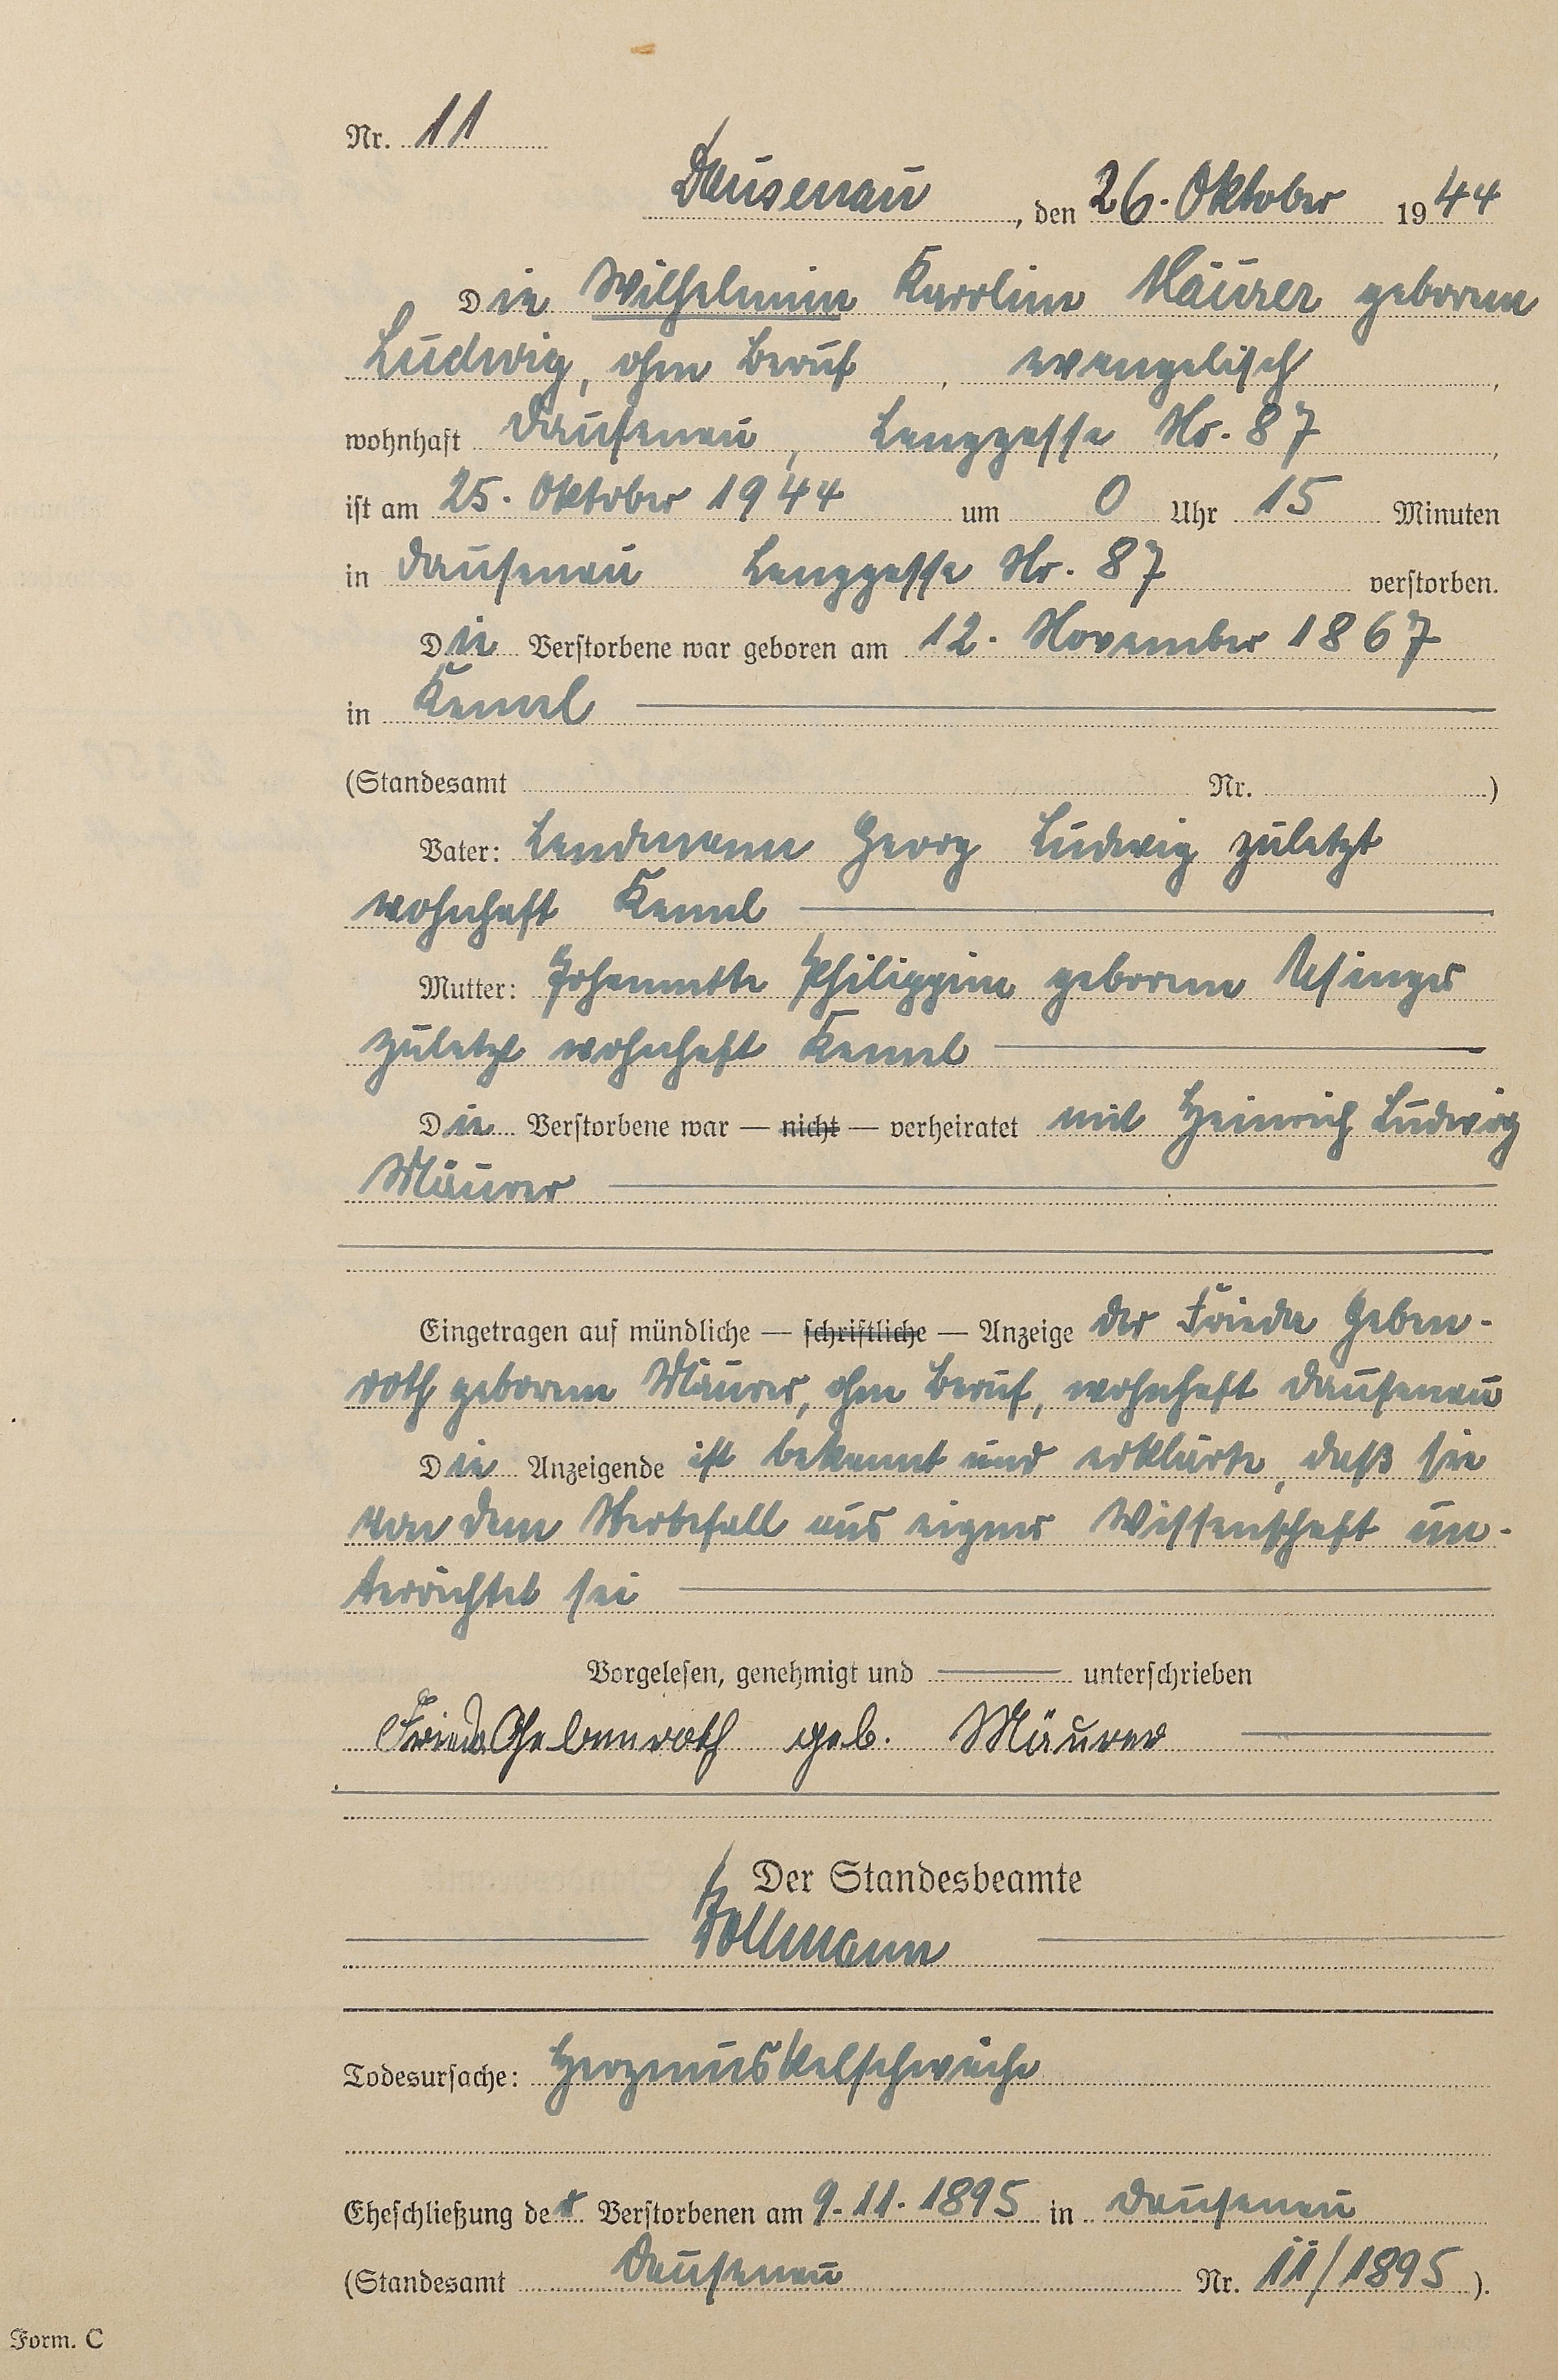 Nr. 11
Dausenau, den 26. Oktober 1944
Die Wilhelmine Karoline Mäurer geborene
Ludwig, ohne Beruf, evangelisch,
wohnhaft Dausenau, Langgasse Nr. 87,
ist am 25. Oktober 1944 um 0 Uhr 15 Minuten
in Dausenau Langgasse Nr. 87 verstorben.
Die Verstorbene war geboren am 12. November 1867
in Kemel
(Standesamt Nr. )
Vater: Landmann Georg Ludwig zuletzt
wohnhaft Kemel
Mutter: Johannette Philippine geborene Usinger
zuletzt wohnhaft Kemel
Die Verstorbene war — nicht — verheiratet mit Heinrich Ludwig
Mäurer
Eingetragen auf mündliche — schriftliche — Anzeige der Frieda Geben-
roth geborene Mäurer, ohne Beruf, wohnhaft Dausenau
Die Anzeigende ist bekannt und erklärte, daß sie
von dem Sterbefall aus eigner Wissenschaft un-
terrichtet sei
Vorgelesen, genehmigt und unterschrieben
Frieda Gebenroth geb. Mäurer
Der Standesbeamte
Todesursache: Herzmuskelschwäche
Eheschließung der Verstorbenen am 9.11.1895 in Dausenau
(Standesamt Dausenau Nr. 11/1895 ).
Form. C